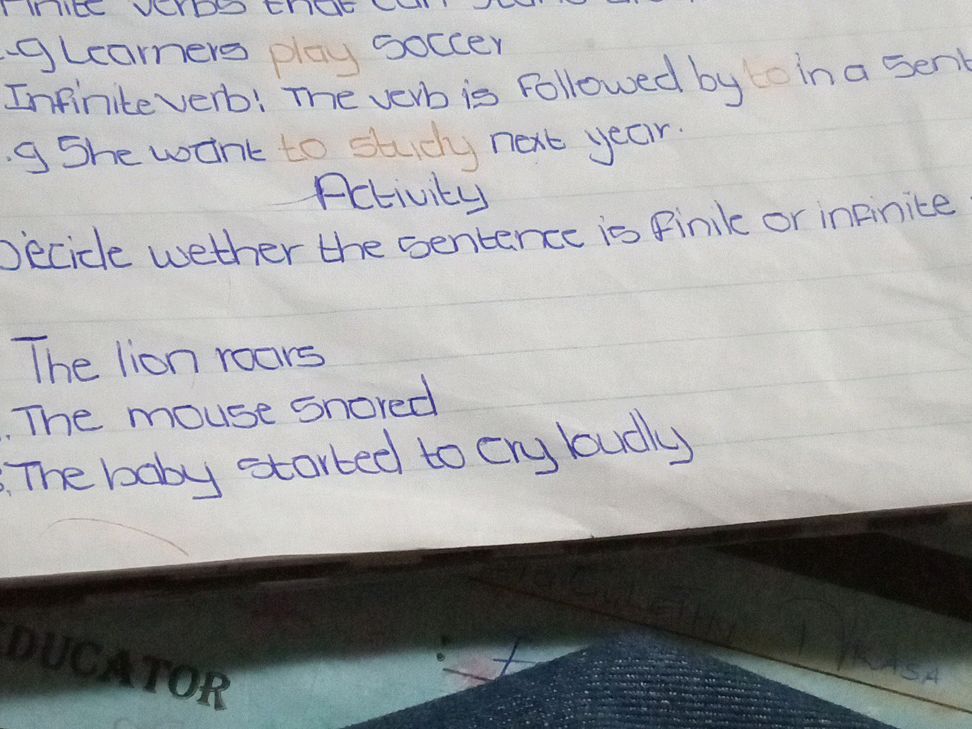 verbs that can
.g Learners play soccer
Infinite verb: The verb is followed by to in a sent
.g She want to study next year.
Activity
Decide wether the sentence is finite or infinite
The lion roars
The mouse snored
The baby started to cry loudly
EDUCATOR